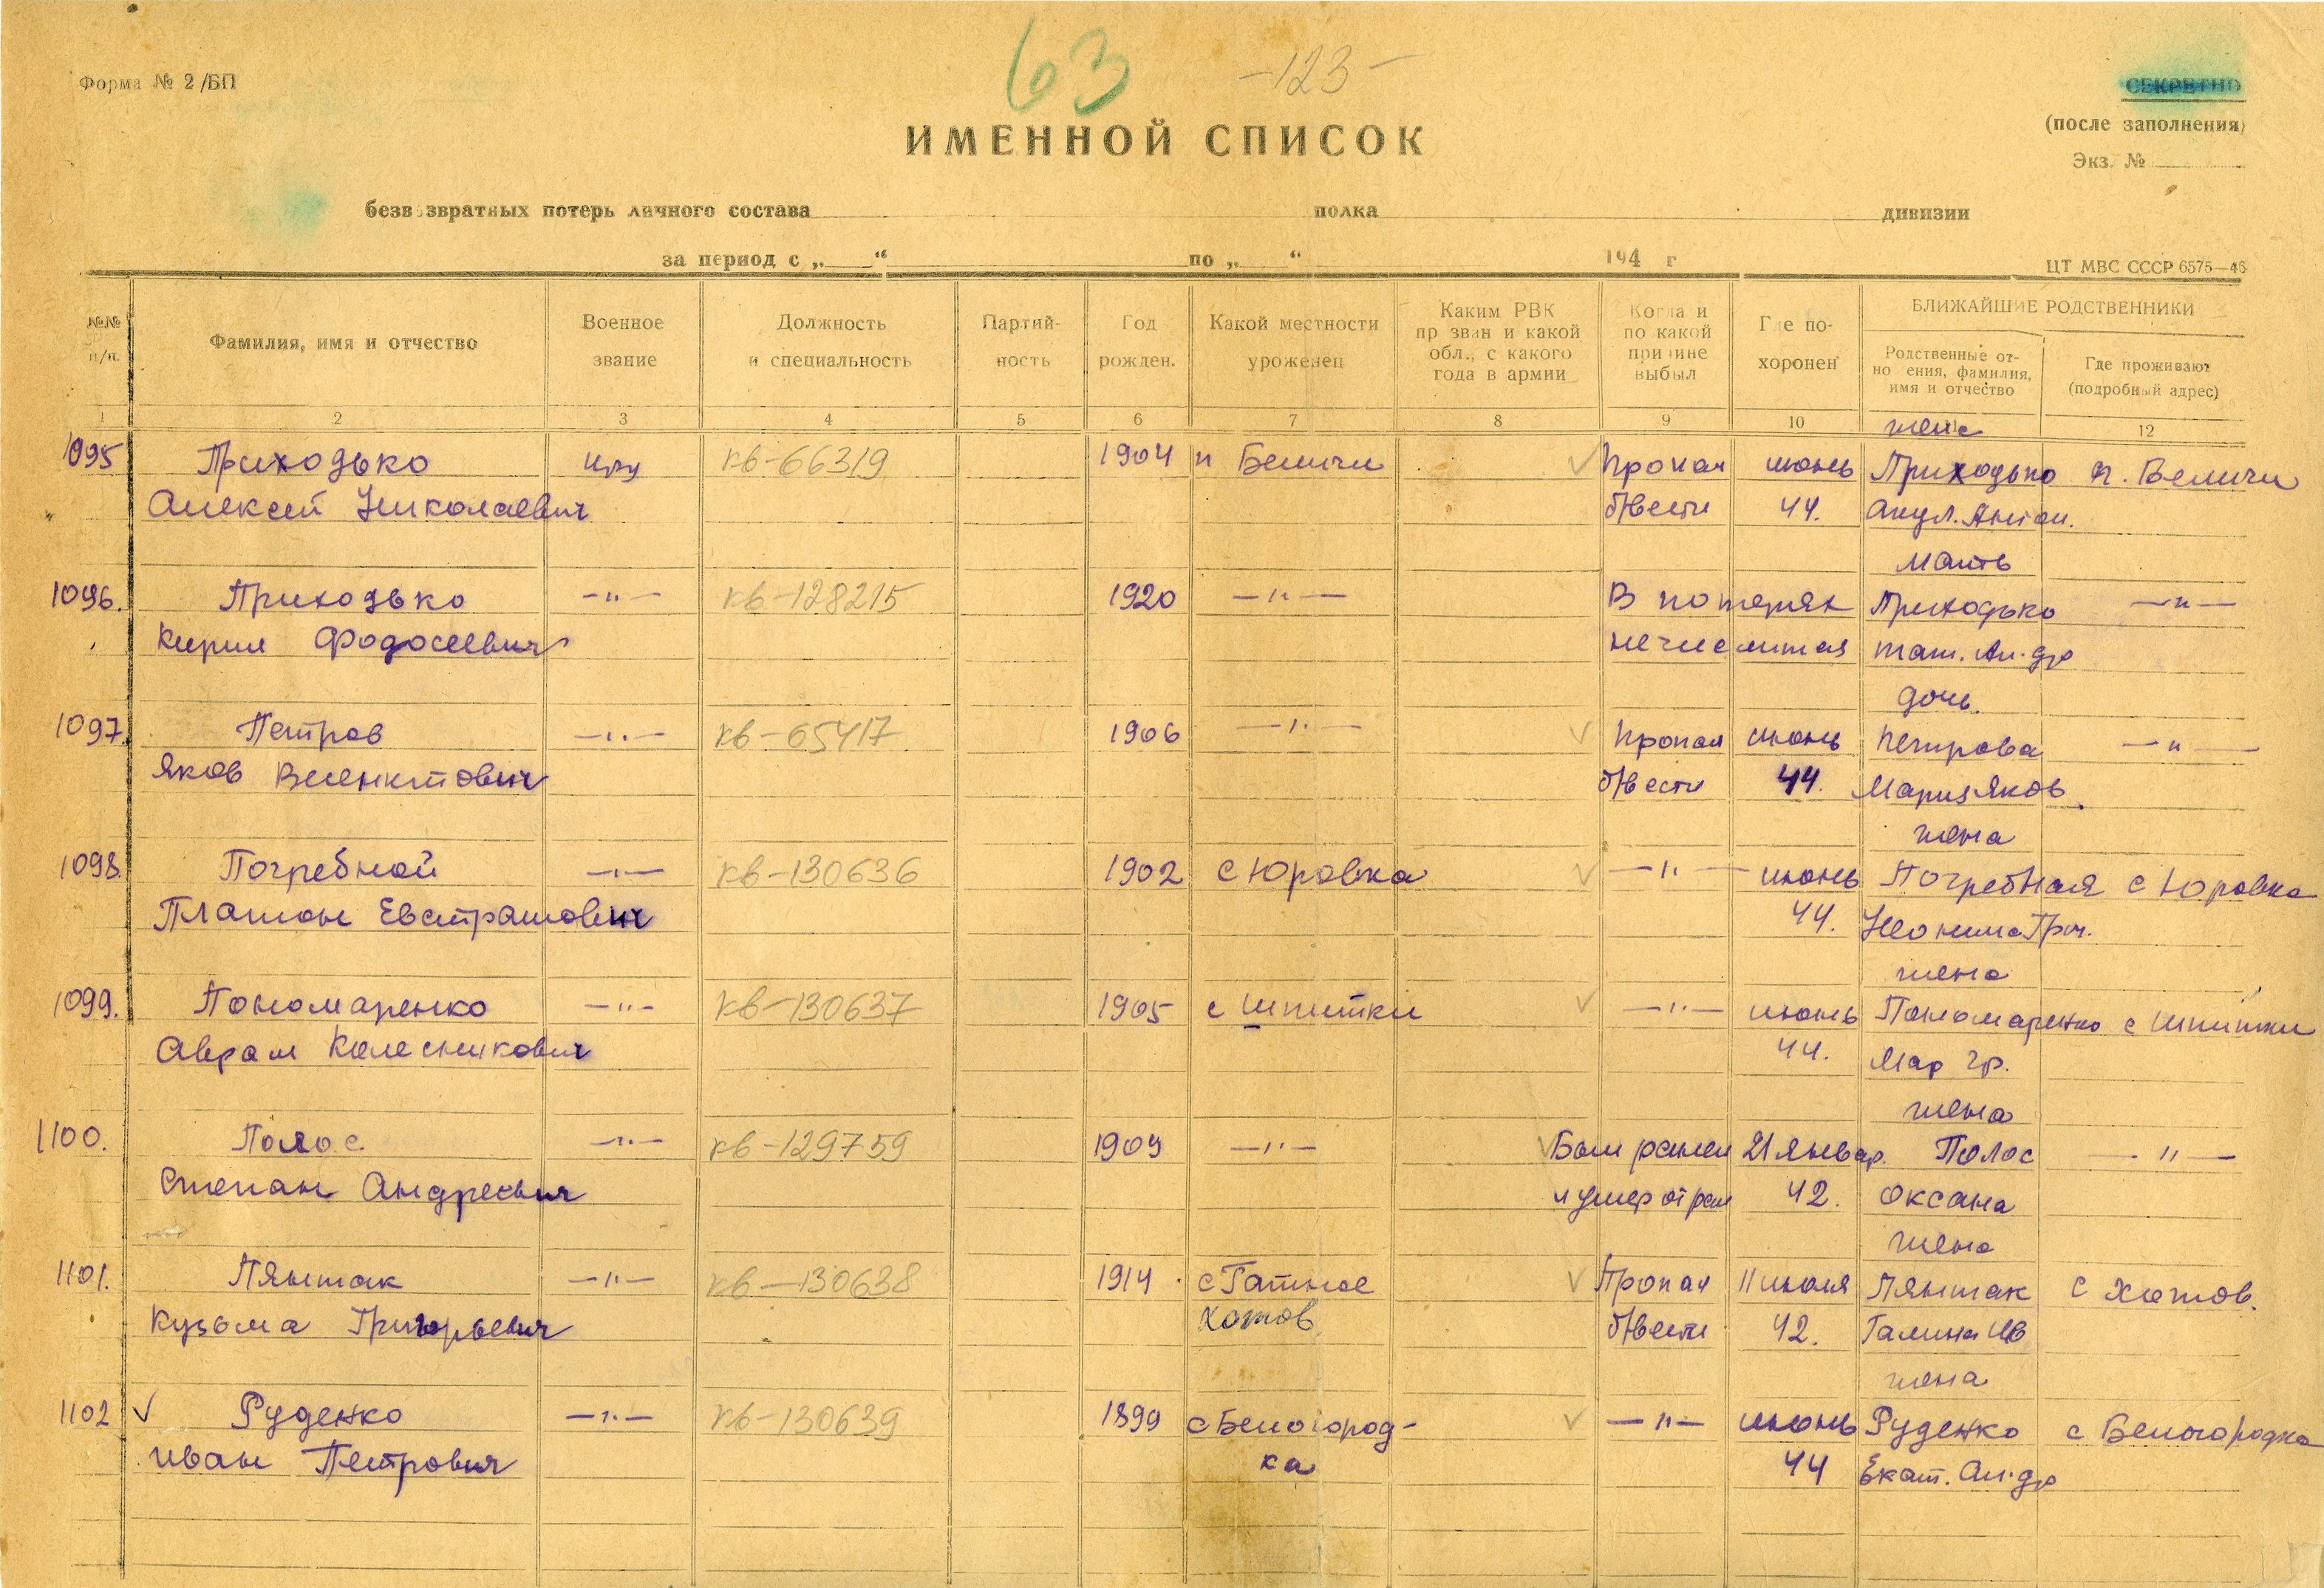 63 -123-
Форма № 2/БП
СЕКРЕТНО
(после заполнения)
Экз. №
ИМЕННОЙ СПИСОК
безвозвратных потерь личного состава полка дивизии
за период с „ “ по „ “ 194 г
ЦТ МВС СССР 6575—46
№№ п/п. Фамилия, имя и отчество Военное звание Должность и специальность Партий-ность Год рожден. Какой местности уроженец Каким РВК призван и какой обл., с какого года в армии Когда и по какой причине выбыл Где по-хоронен БЛИЖАЙШИЕ РОДСТВЕННИКИ
Родственные от-ношения, фамилия, имя и отчество Где проживают (подробный адрес)
1 2 3 4 5 6 7 8 9 10 12
жена
1095 Приходько кр-ц кв-66319 1904 п Беличи Пропал июнь Приходько п. Беличи
Алексей Николаевич б/вести 44. Акул. Антон.
мать
1096. Приходько —"— кв-128215 1920 —"— В потерях Приходько —"—
Кирил Фодосеевич нечислится тат. Ан.др
дочь.
1097. Петров —"— кв-65417 1906 —"— Пропал июнь Петрова —"—
Яков б/вести 44. Мария Яков.
жена
1098. Погребной —"— кв-130636 1902 с Юровка —"— июнь Погребная с Юровка
Платон Евстратович 44. Гри.
жена
1099. Пономаренко —"— кв-130637 1905 с Шпитки —"— июнь Пономаренко с Шпитки
Аврам Колесникович 44. Мар Гр.
жена
1100. Полос —"— кв-129759 1909 —"— Был ранен 21 январ. Полос —"—
Степан Андреевич и умер от ран 42. Оксана
жена
1101. Лянтак —"— кв-130638 1914 с Гатное Пропал 11 июля Лянтак с Хотов.
Кузьма Григорьевич Хотов б/вести 42. Галина Ив
жена
1102 Руденко —"— кв-130639 1899 с Белогород- —"— июнь Руденко с Белогородка
Иван Петрович ка 44 Екат. Ан.др